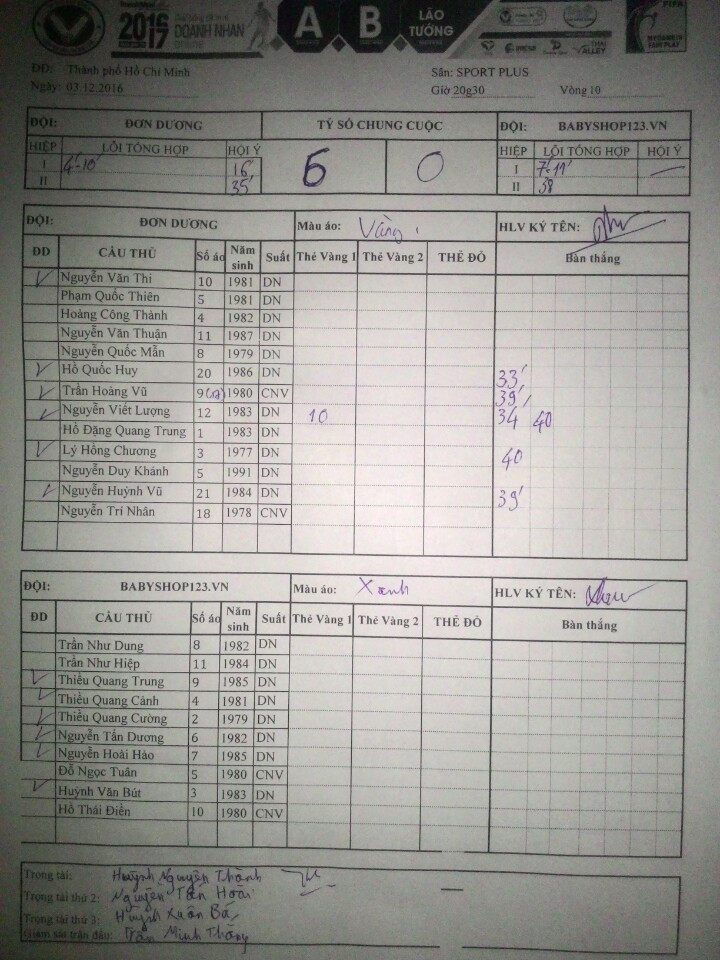 2016 2017 DOANH NHÂN A B LÃO TƯỚNG
ĐĐ: Thành phố Hồ Chí Minh Sân: SPORT PLUS
Ngày: 03.12.2016 Giờ 20g30 Vòng 10
ĐỘI: ĐƠN DƯƠNG TỶ SỐ CHUNG CUỘC ĐỘI: BABYSHOP123.VN
HIỆP LỖI TỔNG HỢP HỘI Ý 6 0 HIỆP LỖI TỔNG HỢP HỘI Ý
I 4'-10' 16' I 7'-11' —
II 35' II 38
ĐỘI: ĐƠN DƯƠNG Màu áo: Vàng HLV KÝ TÊN:
ĐD CẦU THỦ Số áo Năm sinh Suất Thẻ Vàng 1 Thẻ Vàng 2 THẺ ĐỎ Bàn thắng
Nguyễn Văn Thi 10 1981 DN
Phạm Quốc Thiên 5 1981 DN
Hoàng Công Thành 4 1982 DN
Nguyễn Văn Thuận 11 1987 DN
Nguyễn Quốc Mẫn 8 1979 DN
Hồ Quốc Huy 20 1986 DN 33'
Trần Hoàng Vũ 9(17) 1980 CNV 39'
Nguyễn Viết Lượng 12 1983 DN 10 34 40
Hồ Đặng Quang Trung 1 1983 DN
Lý Hồng Chương 3 1977 DN 40
Nguyễn Duy Khánh 5 1991 DN
Nguyễn Huỳnh Vũ 21 1984 DN 39'
Nguyễn Trí Nhân 18 1978 CNV
ĐỘI: BABYSHOP123.VN Màu áo: Xanh HLV KÝ TÊN:
ĐD CẦU THỦ Số áo Năm sinh Suất Thẻ Vàng 1 Thẻ Vàng 2 THẺ ĐỎ Bàn thắng
Trần Như Dung 8 1982 DN
Trần Như Hiệp 11 1984 DN
Thiều Quang Trung 9 1985 DN
Thiều Quang Cảnh 4 1981 DN
Thiều Quang Cường 2 1979 DN
Nguyễn Tấn Dương 6 1982 DN
Nguyễn Hoài Hảo 7 1985 DN
Đỗ Ngọc Tuấn 5 1980 CNV
Huỳnh Văn Bút 3 1983 DN
Hồ Thái Điền 10 1980 CNV
Trọng tài: Huỳnh Nguyên Thành
Trọng tài thứ 2: Nguyễn Tấn Hoài
Trọng tài thứ 3: Huỳnh Xuân Bá
Giám sát trận đấu: Trần Minh Thắng